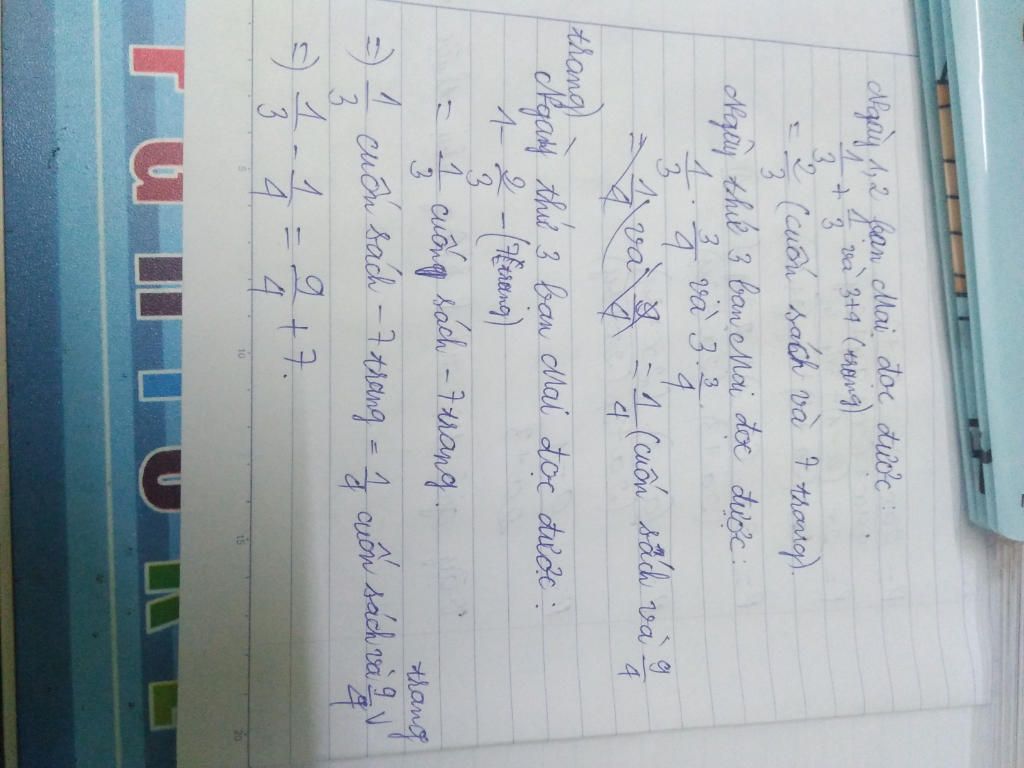 Ngày 1,2 bạn Mai đọc được:
1/3 + 1/3 và 3+4 (trang)
= 2/3 (cuốn sách và 7 trang).
Ngày thứ 3 bạn Mai đọc được:
1/3 . 3/4 và 3 . 3/4
= 1/4 và 9/4 = 1/4 (cuốn sách và 9/4
trang)
Ngày thứ 3 bạn Mai đọc được:
1 - 2/3 - (7 trang)
= 1/3 cuống sách - 7 trang.
trang
=) 1/3 cuốn sách - 7 trang = 1/4 cuốn sách và 9/4
=) 1/3 - 1/4 = 9/4 + 7.